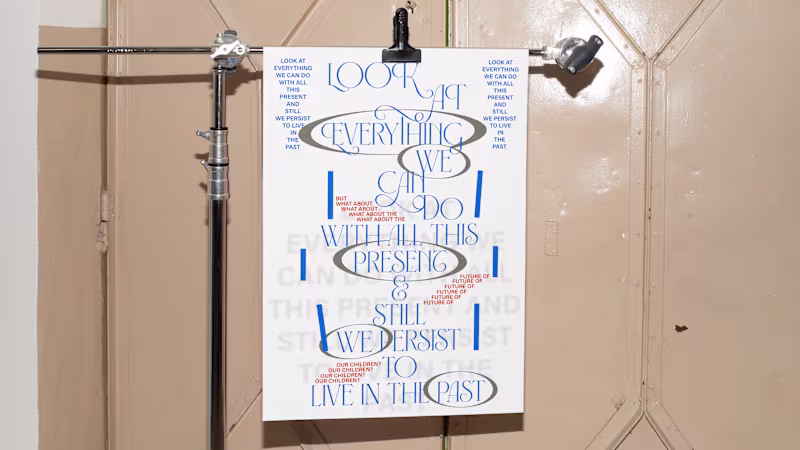 LOOK AT
EVERYTHING
WE CAN DO
WITH ALL
THIS
PRESENT
AND
STILL
WE PERSIST
TO LIVE
IN
THE
PAST
LOOK
AT
EVERYTHING
WE
CAN
DO
WITH ALL THIS
PRESENT
&
STILL
WE PERSIST
TO
LIVE IN THE PAST
LOOK AT
EVERYTHING
WE CAN DO
WITH ALL
THIS
PRESENT
AND
STILL
WE PERSIST
TO LIVE
IN
THE
PAST
BUT
WHAT ABOUT
WHAT ABOUT
WHAT ABOUT THE
WHAT ABOUT THE
FUTURE OF
FUTURE OF
FUTURE OF
FUTURE OF
FUTURE OF
OUR CHILDREN?
OUR CHILDREN?
OUR CHILDREN?
OUR CHILDREN?
EVERYTHING WE
CAN DO WITH ALL
THIS PRESENT AND
STILL WE PERSIST
TO LIVE IN THE
PAST